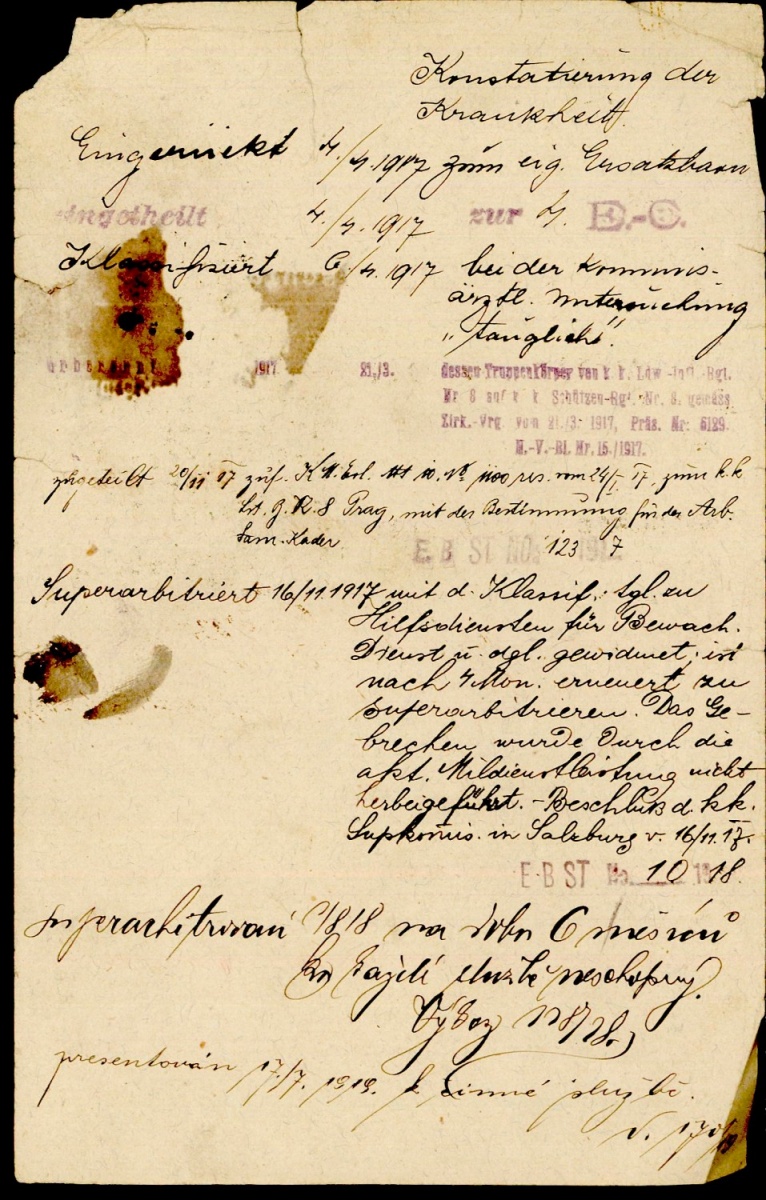 Konstatierung der
Krankheit.
Eingerückt 4./4. 1917 zum eig. Ersatzbaon
eingetheilt 4./4. 1917 zur 4. E.-C.
Klassifiziert 6/4. 1917 bei der Kommis-
ärztl. Untersuchung
„tauglich“.
1917 21./3. dessen Truppenkörper von k. k. Ldw.-Inf.-Rgt.
Nr. 8 auf k. k. Schützen-Rgt. Nr. 8. gemäss
Zirk.-Vrg. vom 21./3. 1917, Präs. Nr. 6129.
N.-V.-Bl. Nr. 15./1917.
zugeteilt 20/11 17 zuf. K.M. Erl. res. vom 24/I 17, zum k.k.
8 Prag, mit der Bestimmung für das Arb.
Sam. Kader
E. B ST No. 123 7
Superarbitriert 16/11. 1917 mit d. Klassif.: tgl. zu
Hilfsdiensten für Bewach.
Dienst u. dgl. gewidmet; ist
nach 4 Mon. erneuert zu
superarbitrieren. Das Ge-
brechen wurde durch die
akt. Mildienstleistung nicht
herbeigeführt. - Beschluß d. k.k.
Supkomis. in Salzburg v. 16/11. 17.
E-B ST No. 10 18.
na dobu 6 měsíců
služby neschopný.
presentován 17./7. 1919. k činné službě.